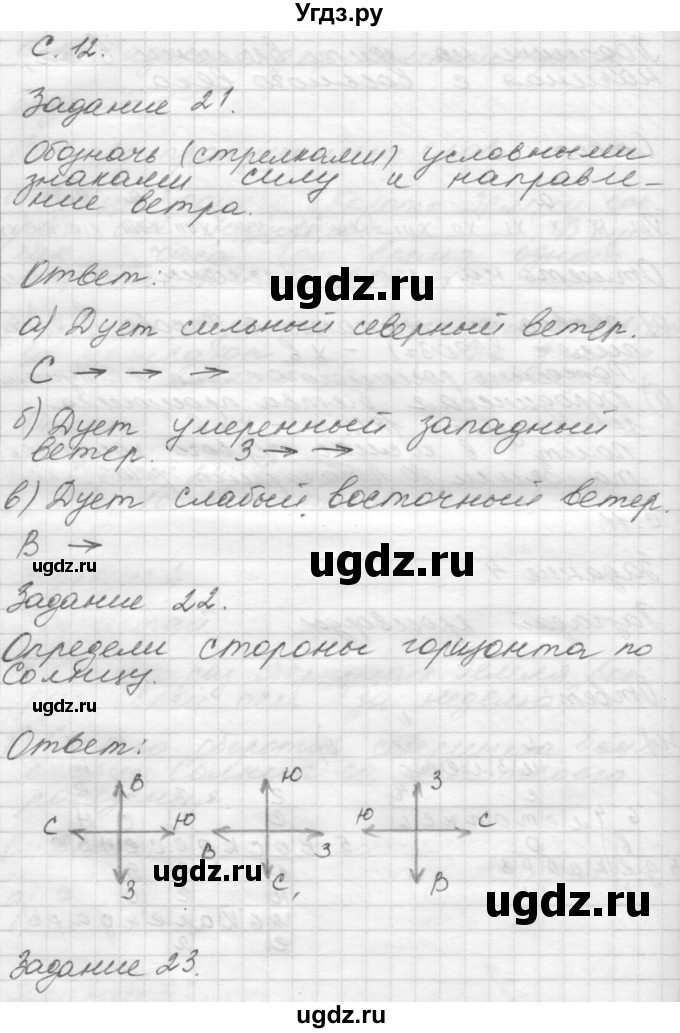 Угдз.ру
С. 12.
Задание 21.
Обозначь (стрелками) условными
знаками силу и направле-
ние ветра.
Ответ:
ugdz.ru
а) Дует сильный северный ветер.
С → → →
б) Дует умеренный западный
ветер. З → →
ugdz.ru
в) Дует слабый восточный ветер.
В →
ugdz.ru
ugdz.ru
Задание 22.
Определи стороны горизонта по
солнцу.
ugdz.ru
ugdz.ru
Ответ:
В Ю З
С Ю В З Ю С
З С, В
ugdz.ru
ugdz.ru
Задание 23.
ugdz.ru